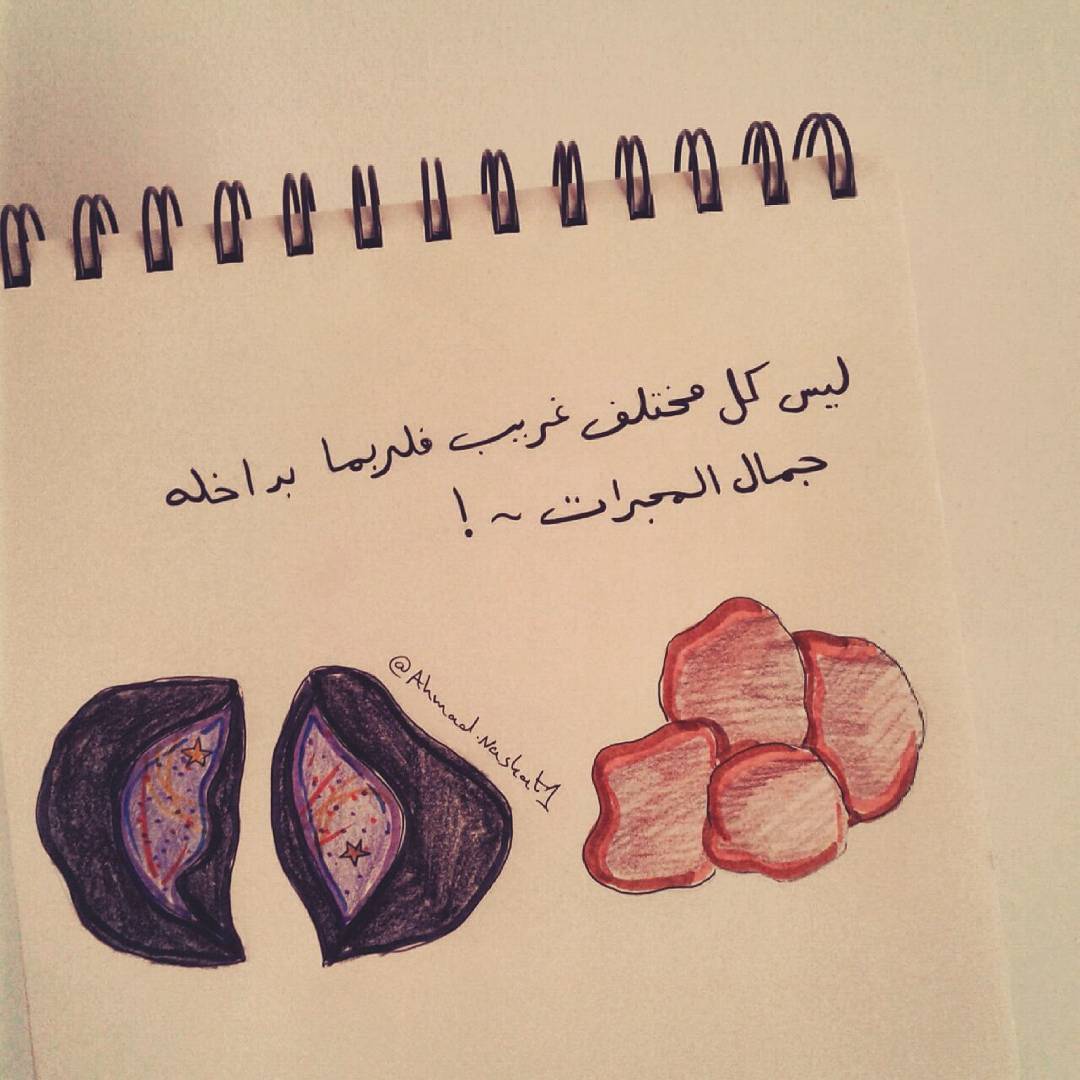 ليس كل مختلف غريب فلربما بداخله
جمال المجرات ~ !
@Ahmad.Nashat1